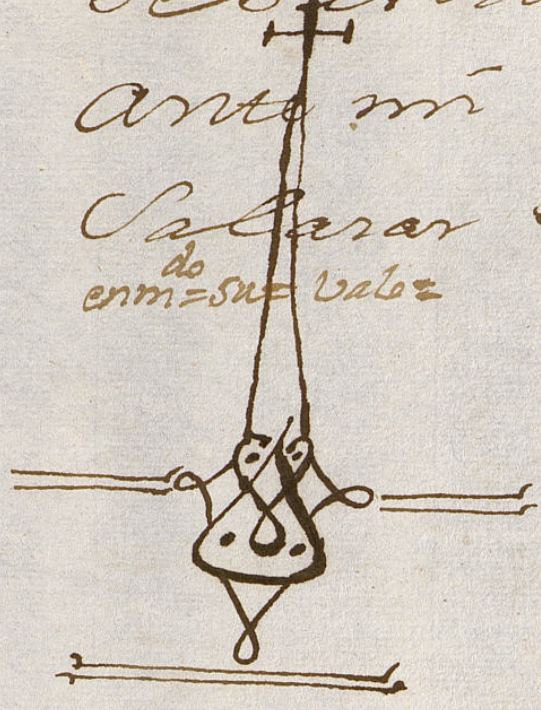 ante mi
Salazar
enm=do su= vale=